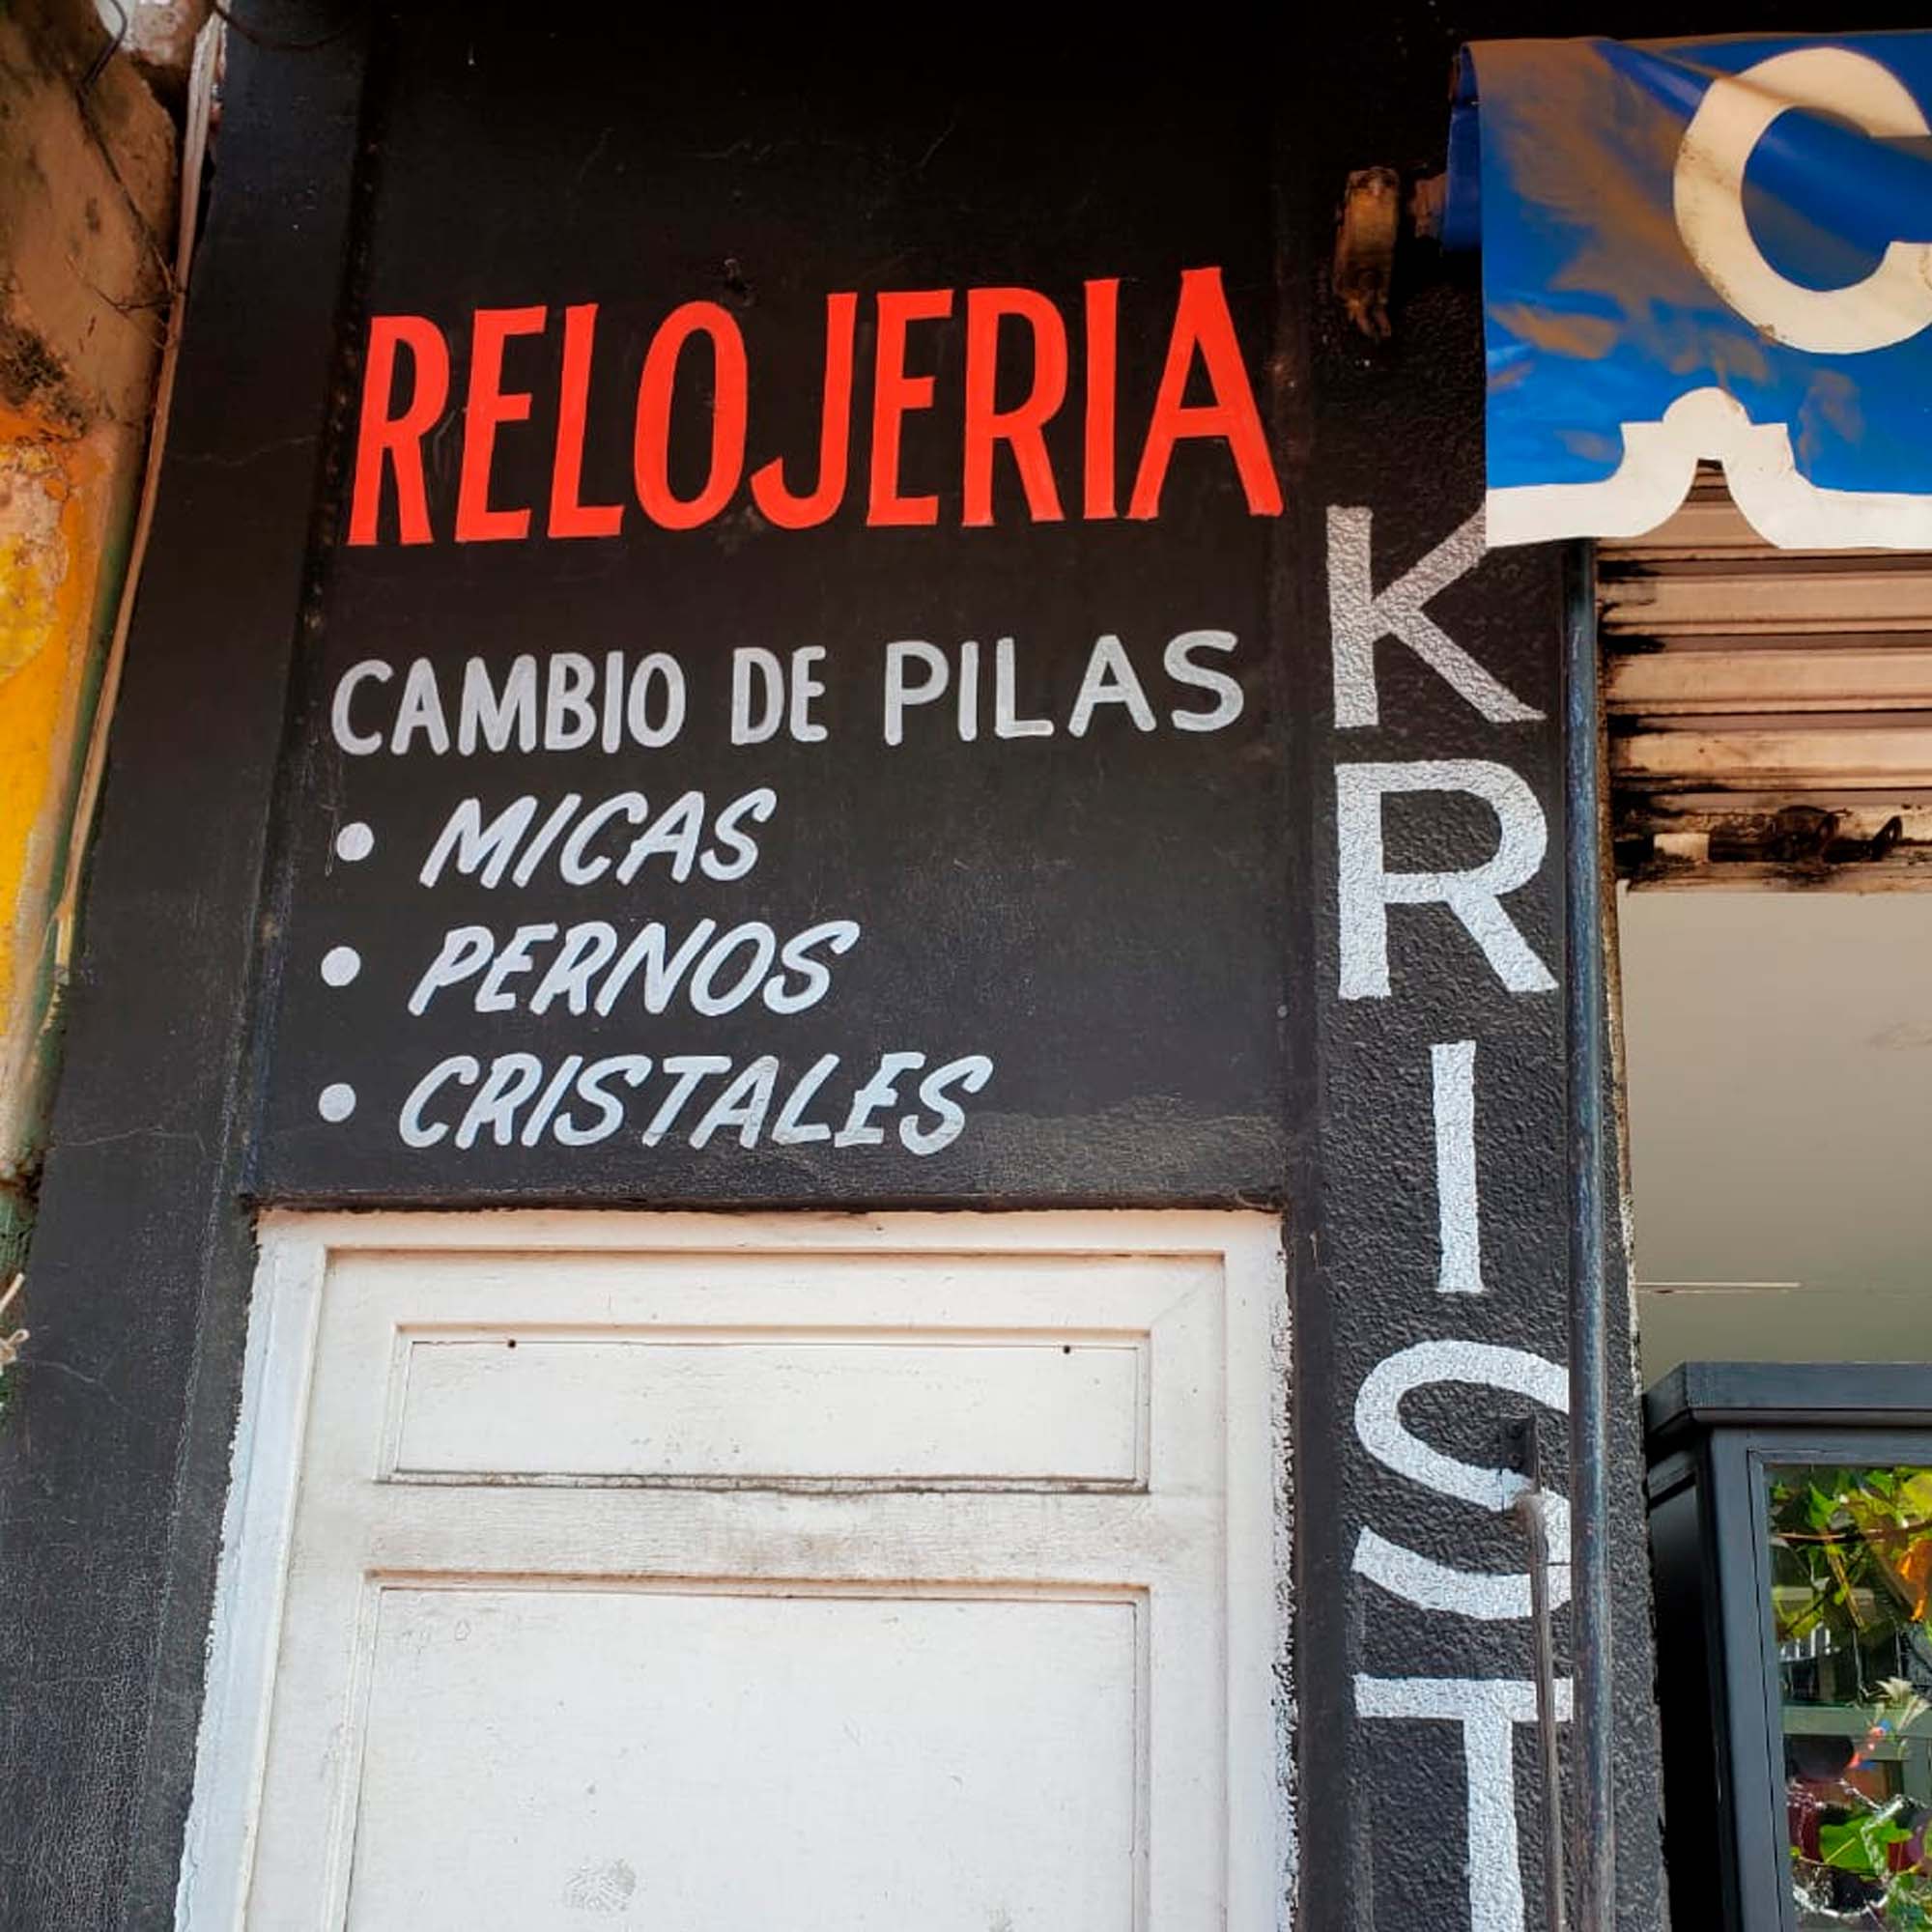 RELOJERIA
CAMBIO DE PILAS
• MICAS
• PERNOS
• CRISTALES
KRIST
C